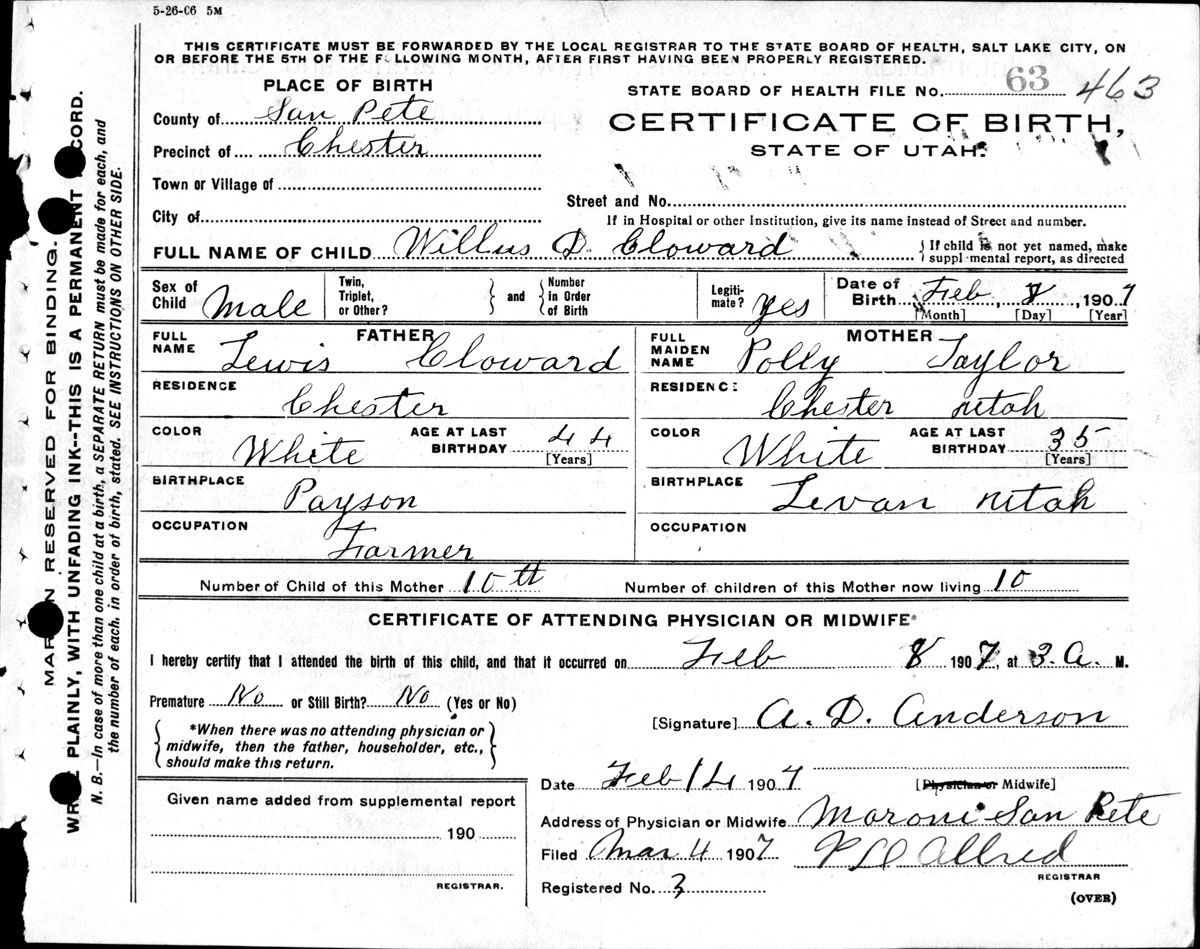 5-26-06 5M
THIS CERTIFICATE MUST BE FORWARDED BY THE LOCAL REGISTRAR TO THE STATE BOARD OF HEALTH, SALT LAKE CITY, ON
OR BEFORE THE 5TH OF THE FOLLOWING MONTH, AFTER FIRST HAVING BEEN PROPERLY REGISTERED.
PLACE OF BIRTH
STATE BOARD OF HEALTH FILE No. 63 463
County of San Pete
CERTIFICATE OF BIRTH,
Precinct of Chester
STATE OF UTAH.
Town or Village of
Street and No.
City of
If in Hospital or other Institution, give its name instead of Street and number.
FULL NAME OF CHILD Willus D. Cloward
If child is not yet named, make
supplmental report, as directed
Sex of Child Male
Twin, Triplet, or Other?
and
Number in Order of Birth
Legiti-mate? yes
Date of Birth Feb 8, 1907
[Month] [Day] [Year]
FATHER
FULL NAME Lewis Cloward
MOTHER
FULL MAIDEN NAME Polly Taylor
RESIDENCE
Chester
RESIDENCE
Chester utah
COLOR White
AGE AT LAST BIRTHDAY 44
[Years]
COLOR White
AGE AT LAST BIRTHDAY 35
[Years]
BIRTHPLACE
Payson
BIRTHPLACE
Levan utah
OCCUPATION
Farmer
OCCUPATION
Number of Child of this Mother 10th
Number of children of this Mother now living 10
CERTIFICATE OF ATTENDING PHYSICIAN OR MIDWIFE*
I hereby certify that I attended the birth of this child, and that it occurred on Feb 8 1907, at 3. A. M.
Premature No or Still Birth? No (Yes or No)
[Signature] A. D. Anderson
*When there was no attending physician or
midwife, then the father, householder, etc.,
should make this return.
Date Feb 14 1907
[Physician or Midwife]
Given name added from supplemental report
190
REGISTRAR.
Address of Physician or Midwife Moroni San Pete
Filed Mar 4 1907
Allred
REGISTRAR
Registered No. 3
(OVER)
MARGIN RESERVED FOR BINDING.
WRITE PLAINLY, WITH UNFADING INK--THIS IS A PERMANENT RECORD.
N. B.—In case of more than one child at a birth, a SEPARATE RETURN must be made for each, and
the number of each, in order of birth, stated. SEE INSTRUCTIONS ON OTHER SIDE.